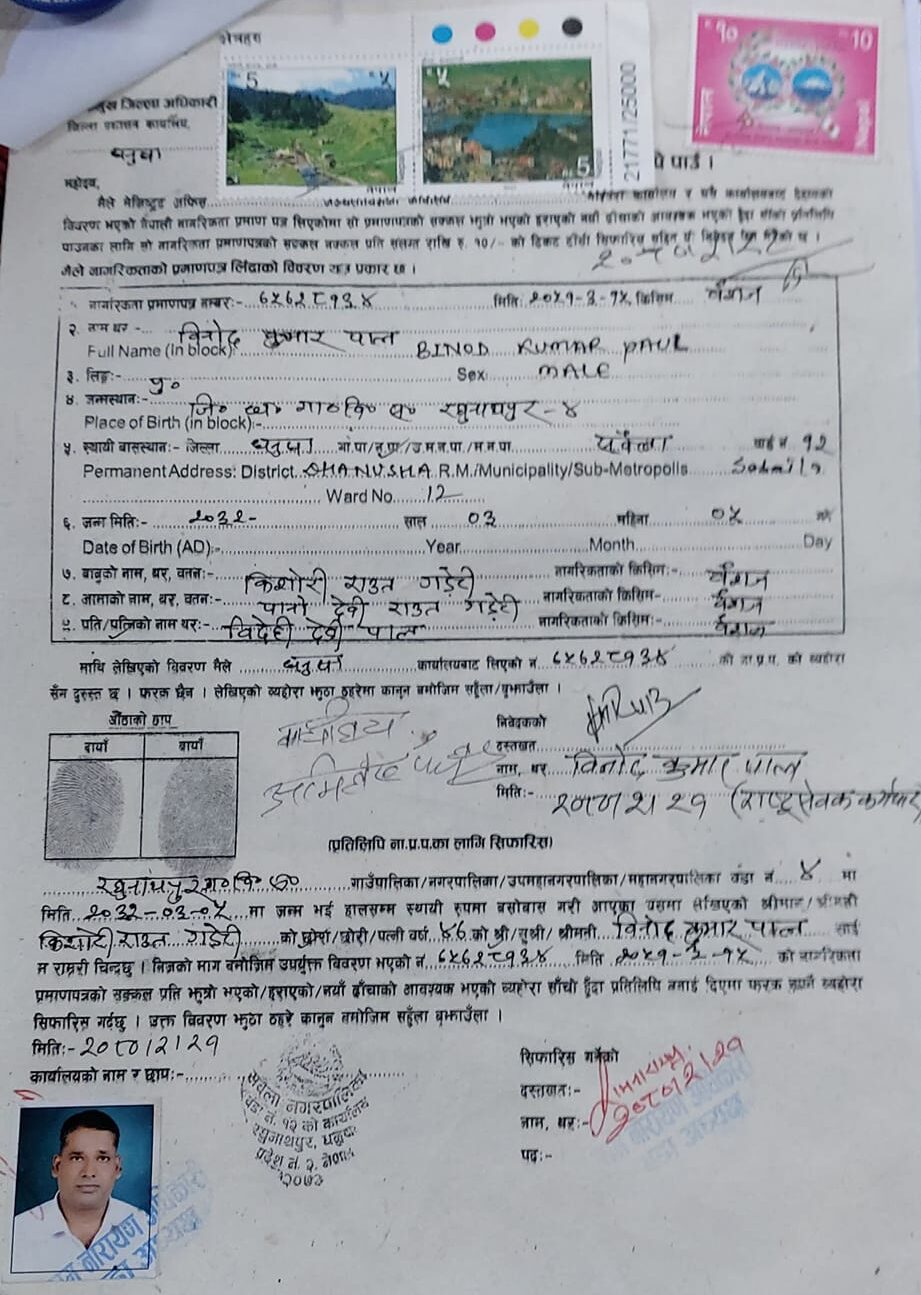 5 ५
५ 5
नेपाल
नेपाल
21771/25000
१० 10
नेपाल Nepal
प्रमुख जिल्ला अधिकारी
जिल्ला प्रशासन कार्यालय,
धनुषा
पाउँ ।
महोदय,
मैले मेजिष्ट्रेट अफिस
विवरण भएको नेपाली नागरिकता प्रमाण पत्र लिएकोमा सो प्रमाणपत्रको सक्कल झुत्रो भएको हराएको नयाँ ढाँचाको आवश्यक भएको हुँदा
पाउनका लागि सो नागरिकता प्रमाणपत्रको सक्कल नक्कल प्रति संलग्न राखि रु. १०/- को टिकट टाँसी सिफारिस सहित यो निवेदन
मैले नागरिकताको प्रमाणपत्र लिंदाको विवरण यस प्रकार छ ।
१. नागरिकता प्रमाणपत्र नम्बर:- ६५६२८१३४ मिति: २०५१-३-१५ किसिम वंशज
२. नाम थर - विनोद कुमार पाल
Full Name (In block):- BINOD KUMAR PAUL
३. लिङ्ग:- पु० Sex MALE
४. जन्मस्थान:- जि० ध० गा०वि०स० रघुनाथपुर - ४
Place of Birth (in block):-
५. स्थायी बासस्थान:- जिल्ला धनुषा गा.पा/न.पा/उ.म.न.पा./म.न.पा. सबैला वार्ड नं. १२
Permanent Address: District. DHANUSHA R.M./Municipality/Sub-Metropolis Sabaila
Ward No. 12
६. जन्म मिति:- २०३२- साल ०३ महिना ०५ गते
Date of Birth (AD):- Year Month Day
७. बाबुको नाम, थर, वतन:- किशोरी राउत गडेरी नागरिकताको किसिम:- वंशज
८. आमाको नाम, थर, वतन:- पानो देवी राउत गडेरी नागरिकताको किसिम- वंशज
९. पति/पत्निको नाम थर:- विदेही देवी पाल नागरिकताको किसिम:- वंशज
माथि लेखिएको विवरण मैले धनुषा कार्यालयबाट लिएको नं. ६५६२८१३४ को ना.प्र.प. को ब्यहोरा
सँग दुरुस्त छ । फरक छैन । लेखिएको व्यहोरा झुठा ठहरेमा कानून बमोजिम सहुँला/बुझाउँला ।
औंठाको छाप
दायाँ बायाँ
निवेदकको
दस्तखत
नाम, थर विनोद कुमार पाल
मिति:- २०८०।२।२१ (राष्ट्रसेवक कर्मचारी)
(प्रतिलिपि ना.प्र.प.का लागि सिफारिस)
रघुनाथपुर गा०वि०स० गाउँपालिका/नगरपालिका/उपमहानगरपालिका/महानगरपालिका वडा नं. ४ मा
मिति २०३२-०३-०५ मा जन्म भई हालसम्म स्थायी रुपमा बसोबास गरी आएका यसमा लेखिएको श्रीमान/श्रीमती
किशोरी राउत गडेरी को छोरा/छोरी/पत्नी वर्ष ४८ को श्री/सुश्री/श्रीमती विनोद कुमार पाल लाई
म राम्ररी चिन्दछु । निजको माग बमोजिम उपर्युक्त विवरण भएको नं. ६५६२८१३४ मिति २०५१-३-१५ को नागरिकता
प्रमाणपत्रको सक्कल प्रति झुत्रो भएको/हराएको/नयाँ ढाँचाको आवश्यक भएको व्यहोरा साँचो हुँदा प्रतिलिपि बनाई दिएमा फरक नपर्ने व्यहोरा
सिफारिस गर्दछु । उक्त विवरण झुठा ठहरे कानून बमोजिम सहुँला बुझाउँला ।
मिति:- २०८०।२।२१
कार्यालयको नाम र छाप:-
सबैला नगरपालिका
वडा नं. १२ को कार्यालय
रघुनाथपुर, धनुषा
प्रदेश नं. २, नेपाल
२०७३
सिफारिस गर्नेको
दस्तखत:-
२०८०।२।२१
नाम, थर:-
पद:-
नारायण अधिकारी
वडा अध्यक्ष